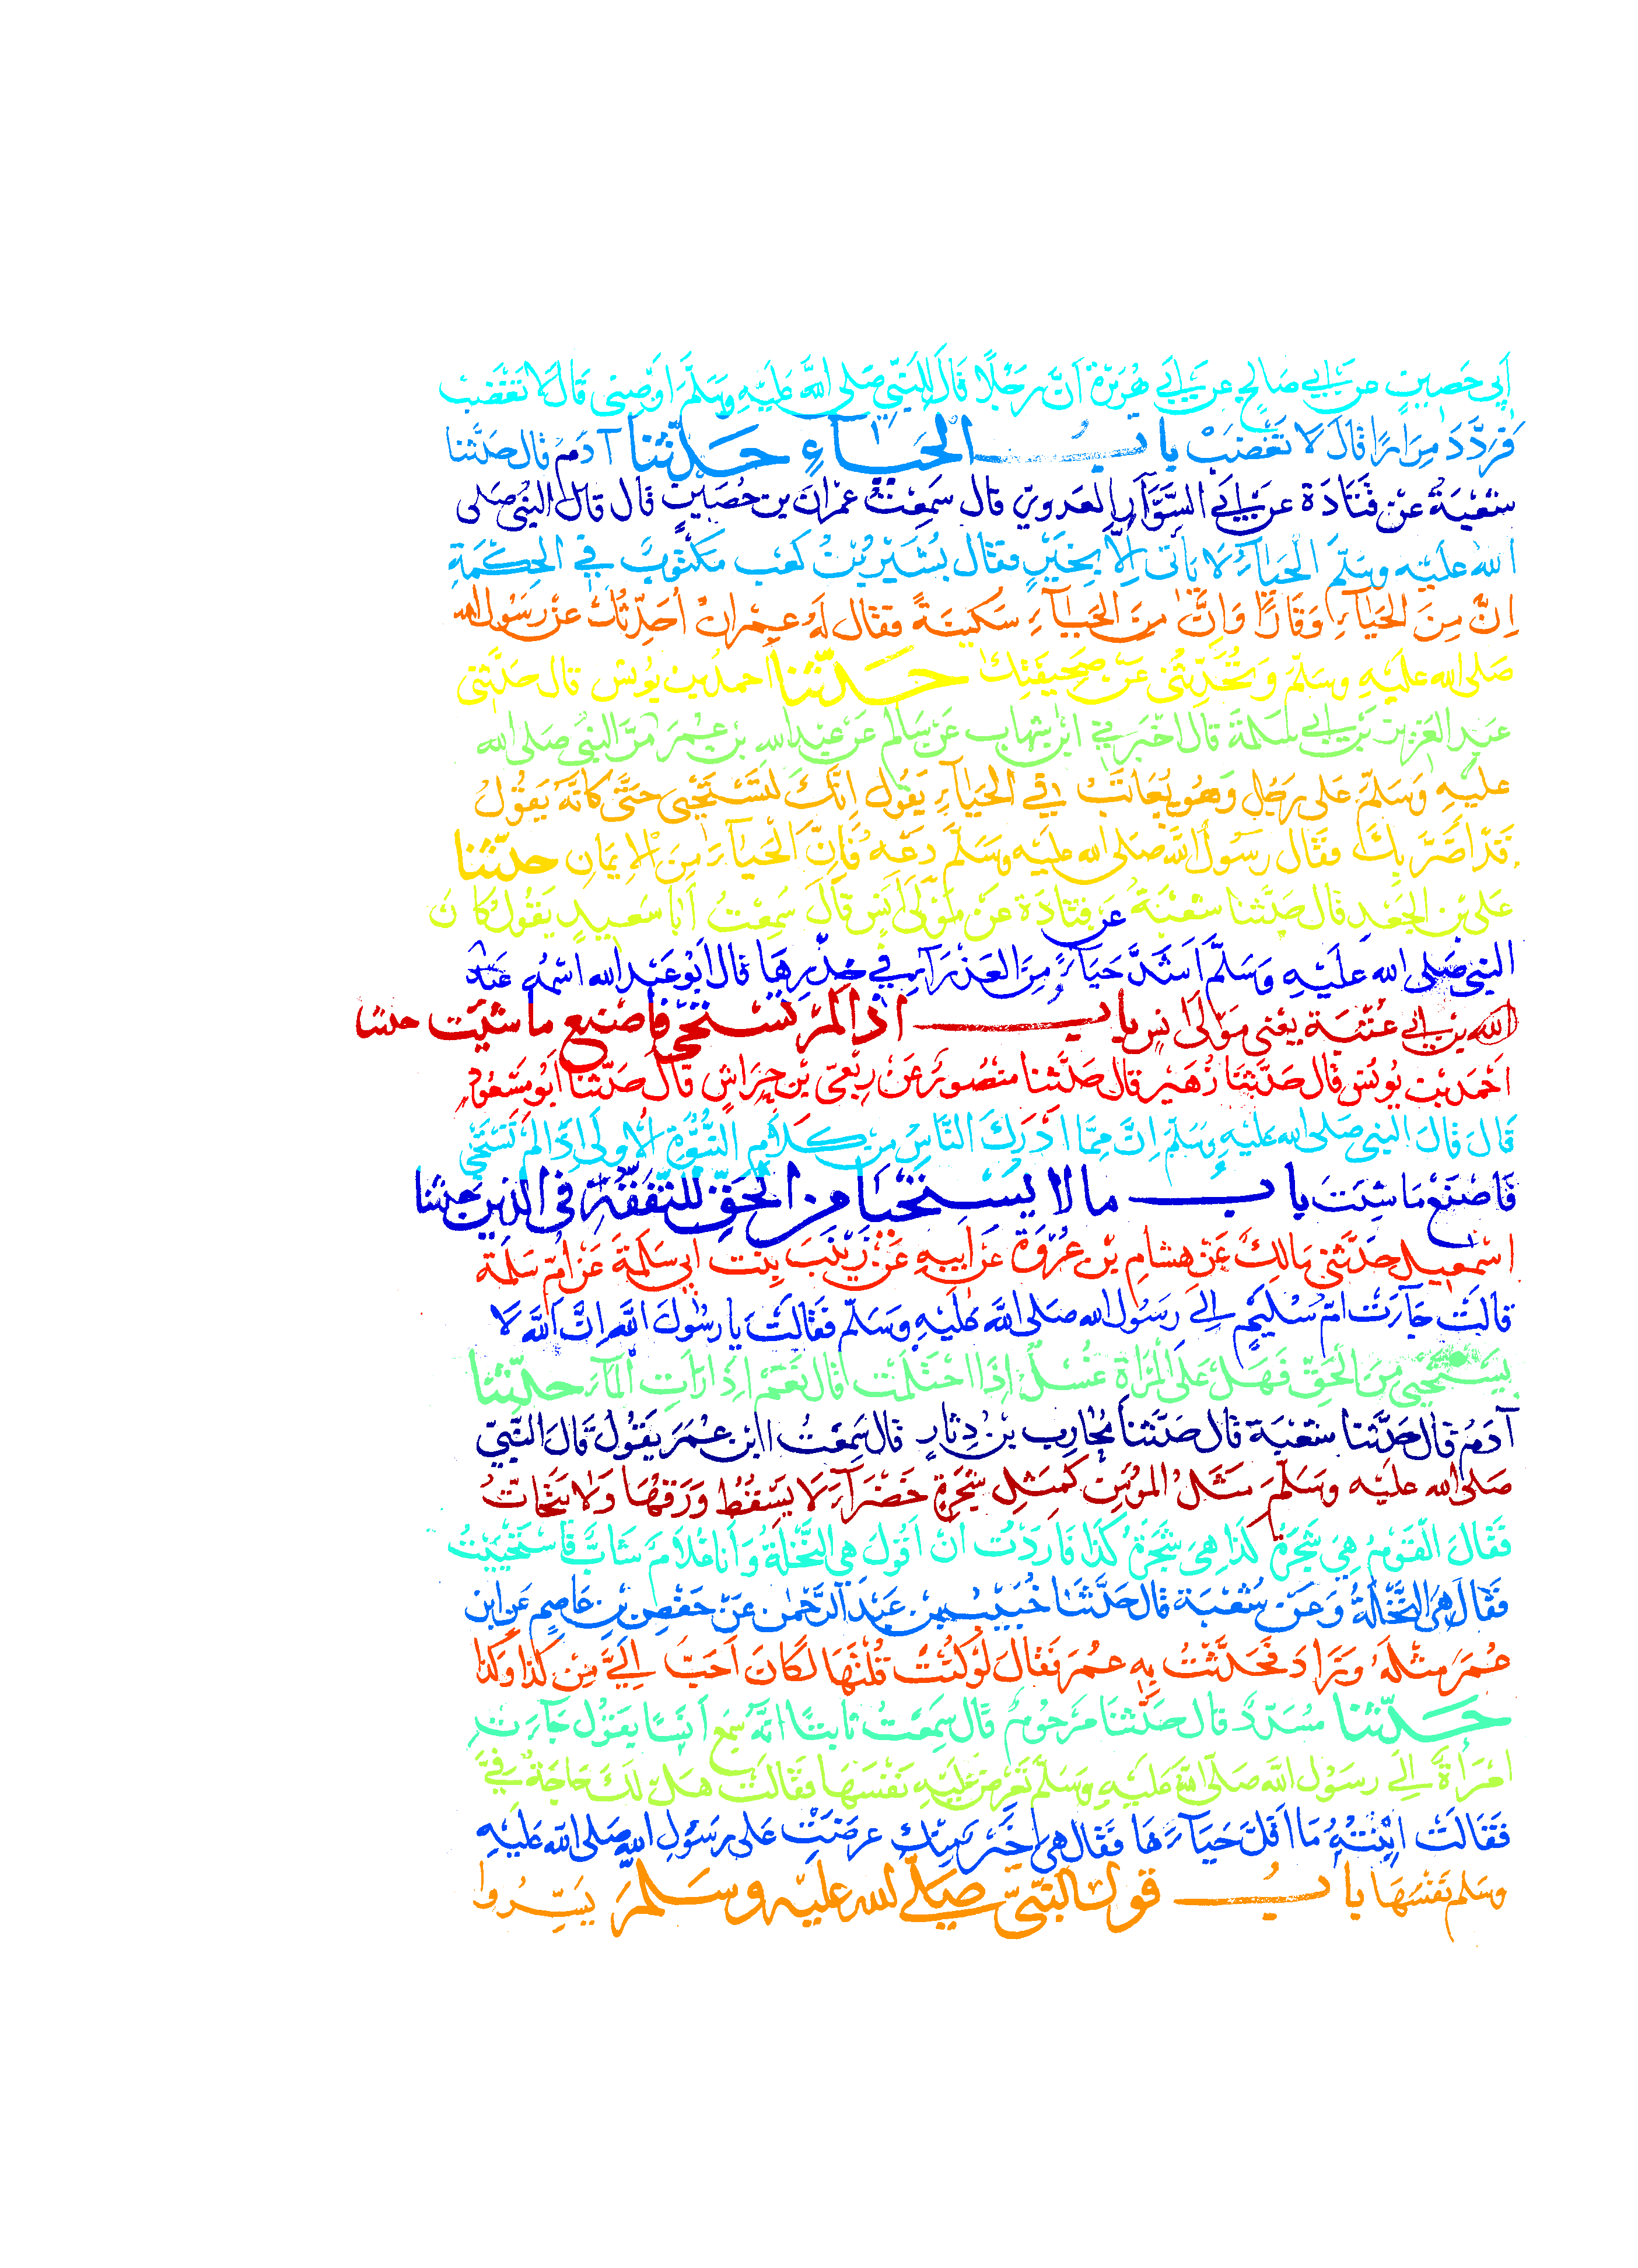 أَبِي حَصِينٍ عن أبي صَالِحٍ عن أبي هُرَيْرَةَ اَنَّ رَجُلًا قَالَ لِلنَّبِيِّ صَلى اللهُ عَلَيْهِ وَسَلَّمَ اَوْصِنِى قَالَ لَا تَغْضَبْ
فَرَدَّدَ مِرَارًا قَالَ لَا تَغْضَبْ باب الحَيَاءِ حَدَّثَنَا آدَمُ قال حَدَّثَنا
شُعْبَةُ عَنْ قَتَادَةَ عن أبي السَّوَّارِ العَدَوِيّ قال سَمِعْتُ عِمْرَانَ بن حُصَيْنٍ قال قال النبى صَلى
الله عَلَيْهِ وسَلَّمَ الحَيَاءُ لَا يَاْتى اِلَّا بِخَيْرٍ فقال بُشَيْرُ بْنُ كَعْبٍ مَكْتُوبٌ فِي الحِكْمَةِ
اِنَّ مِنَ الحَيَاءِ وَقَارًا وَاِنَّ مِنَ الحَيَاءِ سَكِينَةً فقال لَهُ عِمْرَانُ اُحَدِّثُكَ عَنْ رَسُولِ الله
صَلى الله عليْهِ وسَلّم وَتُحَدِّثُنى عَنْ صَحِيفَتِكَ حَدَّثَنَا احمد بن يُونُس قال حَدَّثَنى
عَبْد العَزِيز بْن أبي سَلَمَةَ قال اَخْبَرَنِي ابْن شِهَاب عَنْ سَالم عَنْ عَبْدِ اللهِ بْنِ عُمَرَ مَرَّ النبىُّ صَلى الله
عليْهِ وَسَلّم عَلى رَجُلٍ وَهُوَ يُعَاتَبُ فِي الحَيَاءِ يَقُول اِنَّكَ لتَسْتَحْيِى حَتَّى كَانَّهُ يَقُوْلُ
قَدْ اَضَرَّ بِكَ فقَال رَسُولُ اللهِ صَلى الله عليْهِ وَسَلَّمَ دَعْهُ فَاِنَّ الْحَيَاءَ مِنَ الْاِيمَانِ حدّثنا
عَلى بْن الجَعْدِ قال حَدَّثَنا شُعْبَةُ عَن قتَادَةَ عَنْ مَوْلَى اَنَس قَالَ سَمِعْتُ أَبَا سَعِيدٍ يَقُوْل كَانَ
النبى صَلى الله عَلَيْهِ وَسَلَّمَ اَشَدَّ حَيَاءً مِنَ العَذْرَاءِ فِي خِدْرِهَا قال اَبُوْ عَبْدِ الله اسْمُهُ عَبْدُ
الله بن أبي عُتْبَةَ يعْنى مَوْلَى اَنس باب اذا لمْ تَسْتَحْىِ فاصْنع ما شئت حدثنا
اَحْمَد بْن يُونُس قال حَدَّثَنَا زُهَيْر قال حَدَّثَنا مَنْصُورٌ عَنْ رِبْعِىّ بْنِ حِرَاشٍ قَال حَدّثَنا اَبُو مَسْعُودٍ
قَالَ قَالَ النبى صَلى الله عليْهِ وَسَلّمَ اِنَّ مِمَّا اَدْرَكَ النَّاسُ مِن كَلَامِ النُّبُوَّةِ الْاُولَى اِذَا لَمْ تَسْتَحْىِ
فَاصْنَعْ مَا شِئتَ باب ما لا يُسْتَحْيَا من الحَقِّ لِلتَّفَقُّهِ فى الدّين حدثنا
اسْمعِيل حَدَّثَنى مَالِكٌ عَنْ هشامِ بْن عُرْوَةَ عَنْ اَبِيهِ عَنْ زَيْنَبَ بِنْتِ ابى سَلَمَةَ عَنْ اُمِّ سَلَمَةَ
قالَتْ جَاءَتْ امّ سُلَيْمٍ اِلى رَسُولِ الله صَلى اللهُ عَلَيْهِ وَسَلّم فَقَالَتْ يا رسُولَ اللهِ اِنَّ اللهَ لَا
يَسْتَحْيِى مِنَ الحَقِّ فَهَلْ عَلَى الْمَرْاَةِ غُسْلٌ اِذَا احْتَلَمَتْ قال نَعَمْ اِذَا رَاَتِ المَاءَ حدّثنا
آدَمُ قال حَدَّثَنا شُعْبَة قَال حَدَّثَنا مُحَارِب بْن دِثَارٍ قال سَمِعْتُ ابْن عُمَرَ يَقُوْلُ قَالَ النَّبِيّ
صَلى الله عليْه وَسَلّمَ مَثَلُ المُؤْمِنِ كَمَثَلِ شَجَرَةٍ خَضْرَاءَ لَا يَسْقُطُ وَرَقُهَا وَلَا يَتَحَاتُّ
فَقَالَ القَوْمُ هِيَ شَجَرَةُ كَذَا هِىَ شَجَرَةُ كَذَا فَاَرَدْتُ اَنْ اَقُولَ هِيَ النَّخْلَةُ وَأَنَا غُلَامٌ شَابٌّ فَاسْتَحْيَيْتُ
فَقَالَ هِىَ النَّخْلَةُ وَعَنْ شُعْبَةَ قال حَدَّثَنَا خُبَيْب بْن عَبْدِ الرَّحْمٰن عَنْ حَفْصِ بْنِ عَاصِمٍ عَنِ ابْن
عُمَرَ مِثْلَهُ وَزَادَ فَحَدَّثْتُ بِهِ عُمَرَ فَقَالَ لَوْ كُنْتَ قُلْتَهَا لَكَانَ اَحَبَّ اِلَىَّ مِنْ كَذَا وَكَذَا
حَدّثنا مُسَدَّدٌ قال حَدَّثَنَا مَرْحُومٌ قَال سَمِعْتُ ثَابتًا انَّهُ سَمِعَ اَنَسًا يَقُوْل جَاءَتِ
امْرَاَةٌ اِلى رسُوْل اللهِ صَلى اللهُ عَلَيْهِ وَسَلّمَ تَعْرِضُ عَلَيْهِ نَفْسَهَا فقَالَتْ هَلْ لَكَ حَاجَةٌ فِيَّ
فَقَالَتْ ابْنَتُهُ مَا اَقَلَّ حَيَاءَهَا فَقَال هِىَ خَيْرٌ مِنْكِ عَرَضَتْ عَلى رَسُولِ اللهِ صَلى الله عَلَيْهِ
وسَلم نَفْسَهَا بابُ قول النبىّ صلى الله عليه وسلم يَسِّرُوا